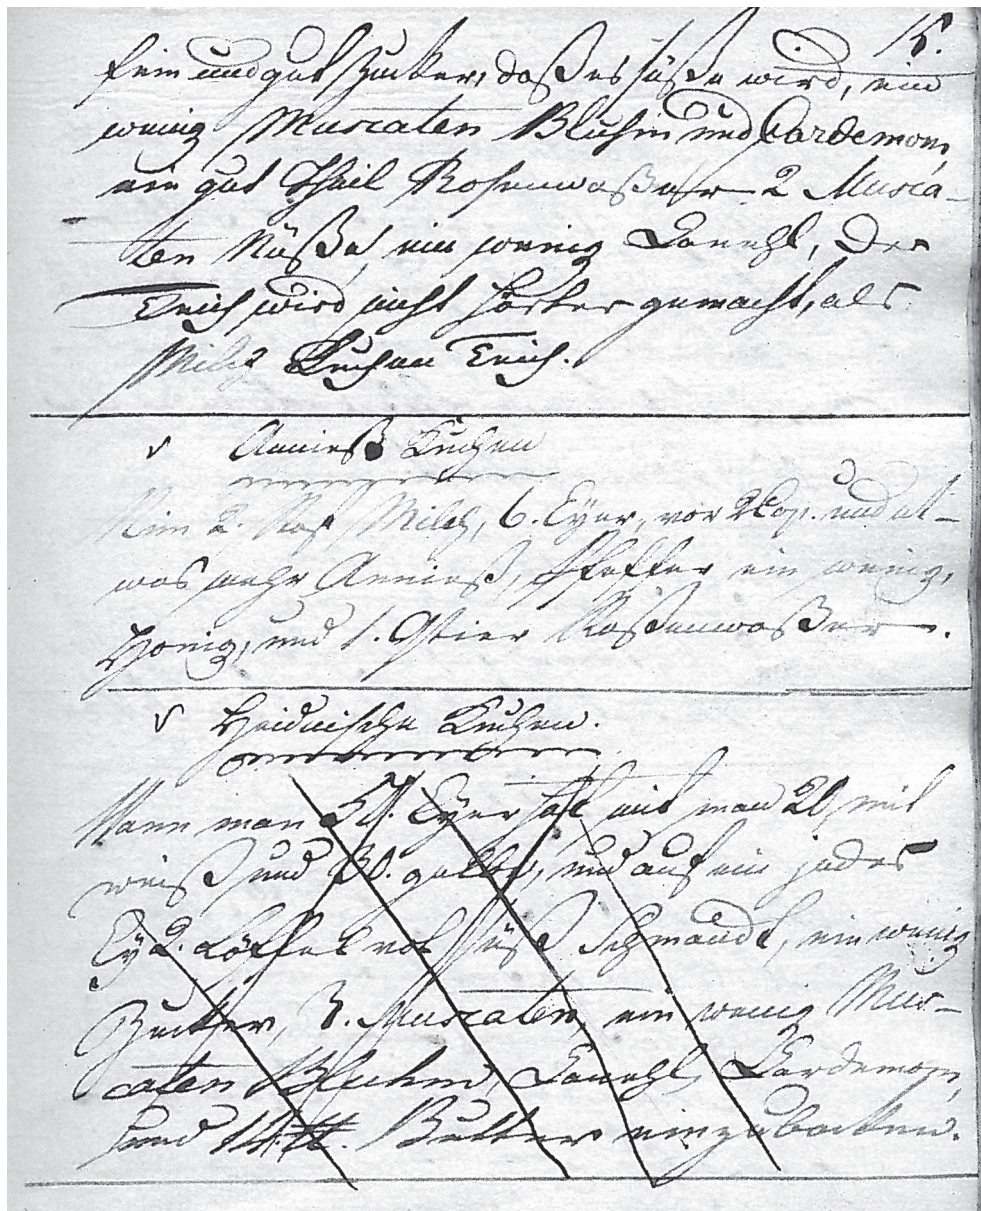 15.
fein und gut Zucker, daß es süße wird, ein
wenig Muscaten Bluhm und Cardemom,
ein gut Theil Rosenwaßer 2 Musca-
ten Nüße, ein wenig Canehl, Der
Teich wird nicht härter gemacht, als
Milch Kuchen Teich.
Annieß Kuchen
Nim 2. Milch, 6. Eyer, vor 2 Cop. und et-
was mehr Annieß, Pfeffer ein wenig,
Honig, und 1. Roßenwaßer.
Heidnische Kuchen.
Wann man Eyer hat nimt man 20 mit
weiß und 30. gelbe, und auf ein jedes
Ey 2. Löffel vol süß Schmandt, ein wenig
Zucker, 3. Muscaten, ein wenig Mus-
caten Bluhm, Canehl, Cardemom,
und Butter einzubacken.